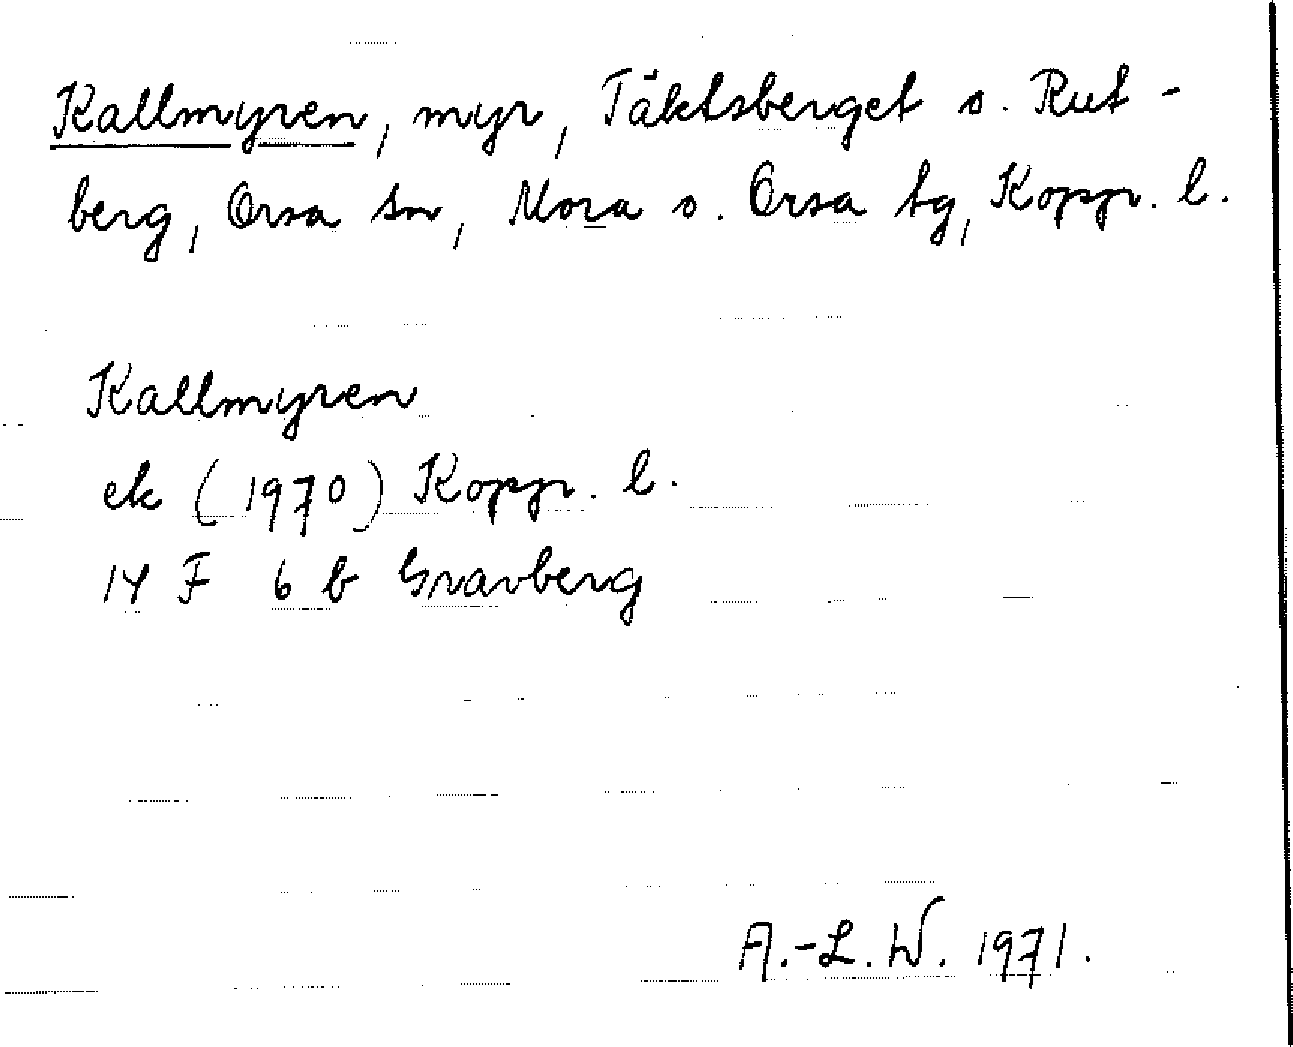 Kallmyren, myr, Täktsberget o. Rut-
berg, Orsa sn, Mora o. Orsa tg, Kopp. l.
Kallmyren
ek (1970) Kopp. l.
14 F 6 b Gravberg
A.-L. W. 1971.